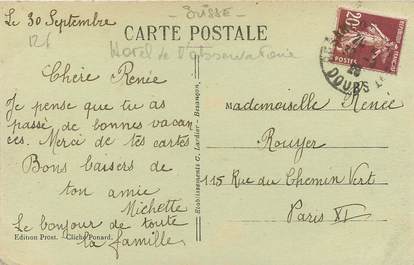 Le 30 Septembre
SUISSE
CARTE POSTALE
Hotel de l'observatoire
Chère Renée
Je pense que tu as
passé de bonnes vacan
ces. Merci de tes cartes
Bons baisers de
ton amie
Michette
Le bonjour de toute
la famille
Edition Prost. Cliché Ponard.
Etablissements C. Lardier - Besançon
20c
POSTES
DOUBS
Mademoiselle Renée
Rouyer
115 Rue du Chemin Vert
Paris XI